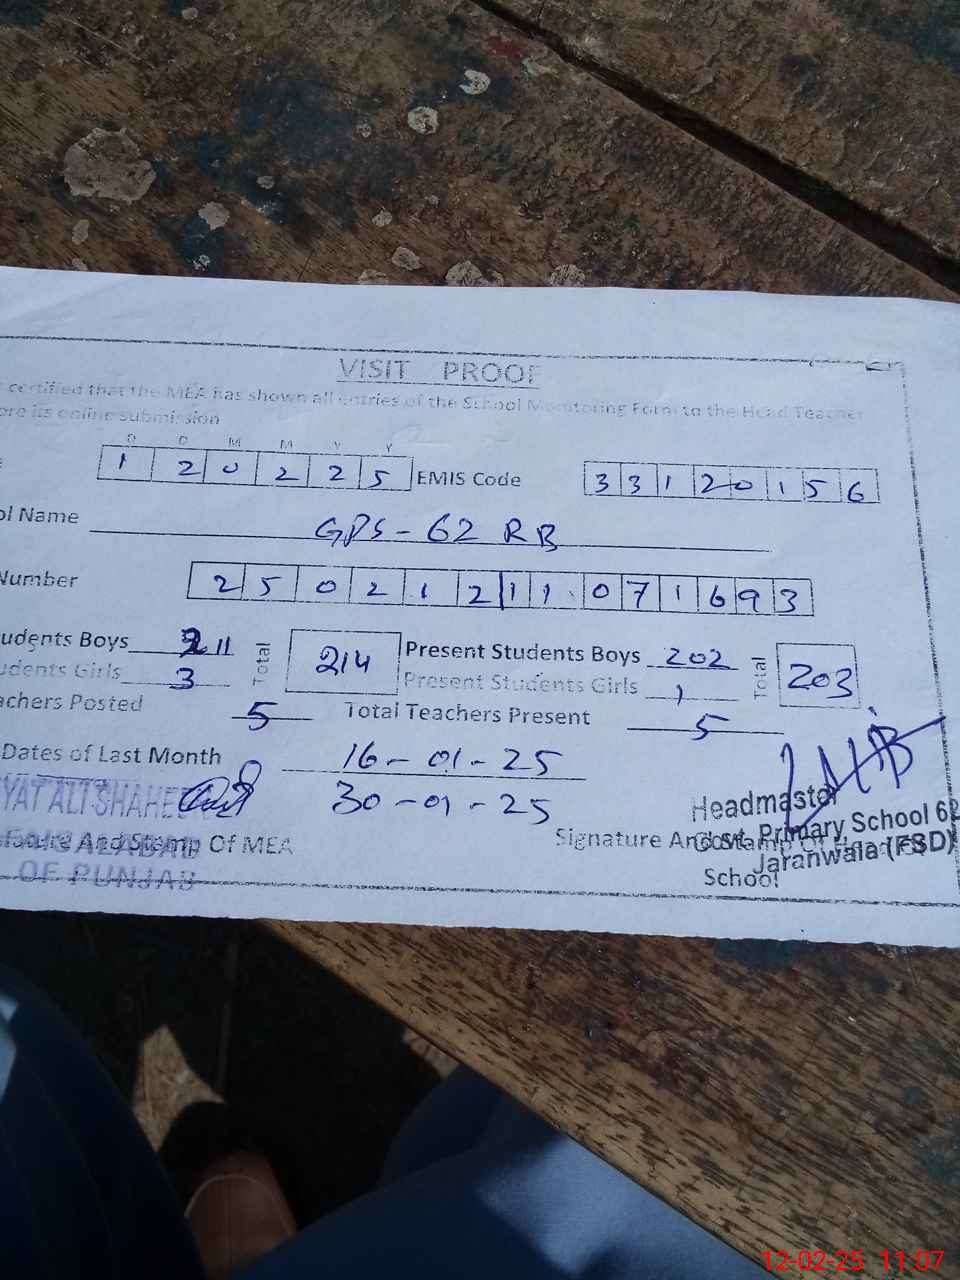 VISIT PROOF
certified that the MEA has shown all entries of the School Monitoring Form to the Head Teacher
ore its online submission
D D M M Y Y
1 2 0 2 2 5 EMIS Code 3 3 1 2 0 1 5 6
ol Name GPS - 62 RB
Number 2 5 0 2 1 2 1 1 0 7 1 6 9 3
udents Boys 211 Total 214 Present Students Boys 202 Total 203
udents Girls 3 Present Students Girls 1
achers Posted 5 Total Teachers Present 5
Dates of Last Month 16-01-25
30-01-25
YAT ALI SHAHE
Headmaster
Govt. Primary School 62
Jaranwala (FSD)
And Stamp Of MEA Signature And Stamp Of
School
FAISALABAD
OF PUNJAB
12-02-25 11:07